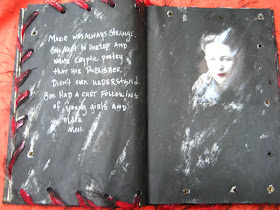 Marie was always strange.
She kept to herself and
wrote cryptic poetry
that her publisher
Didn't even understand
She had a cult following
of young girls and
older
men.